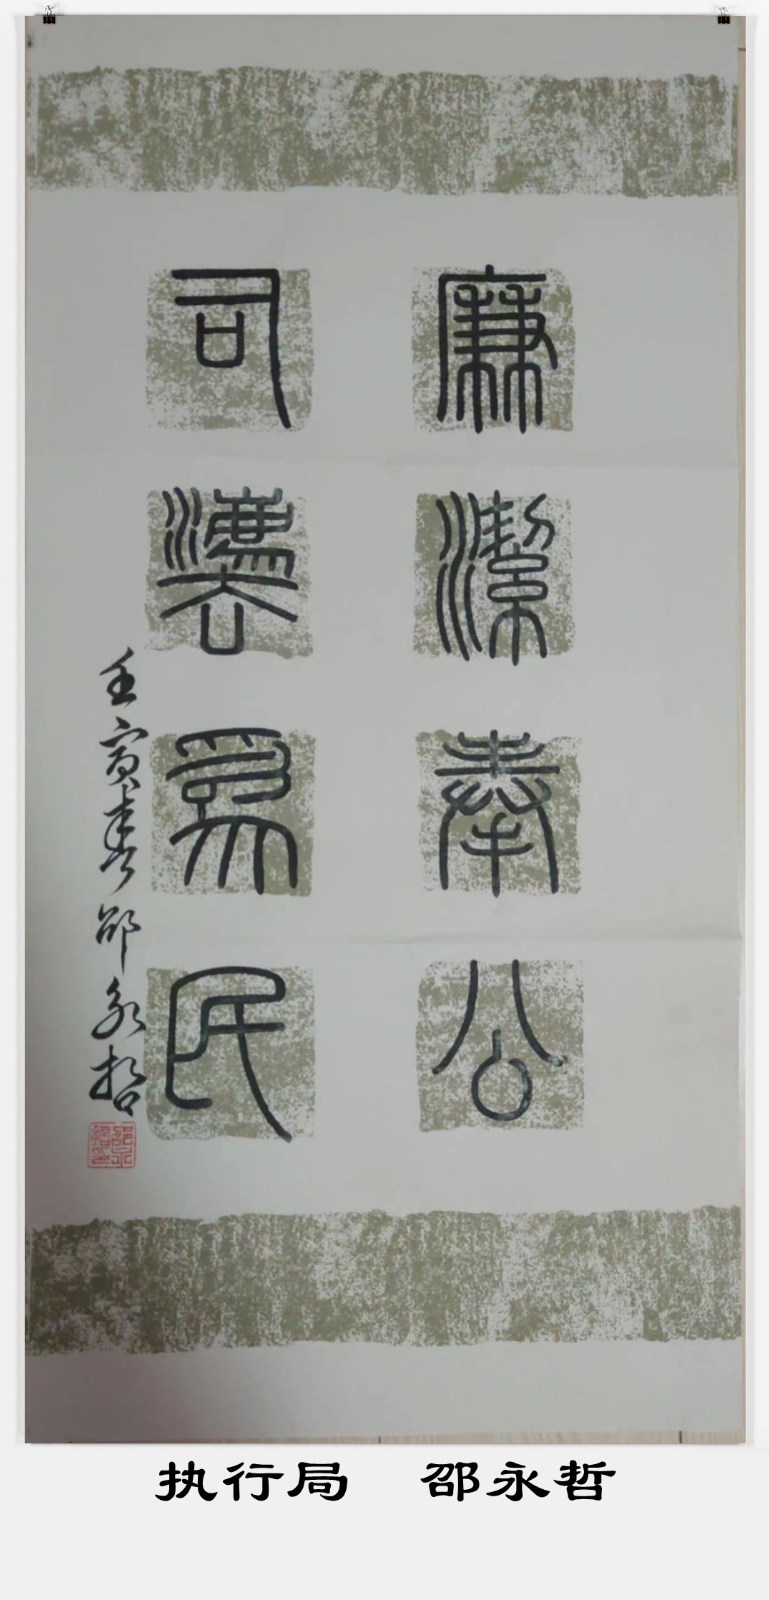 廉潔奉公
司灋為民
壬寅春邵永哲
执行局 邵永哲